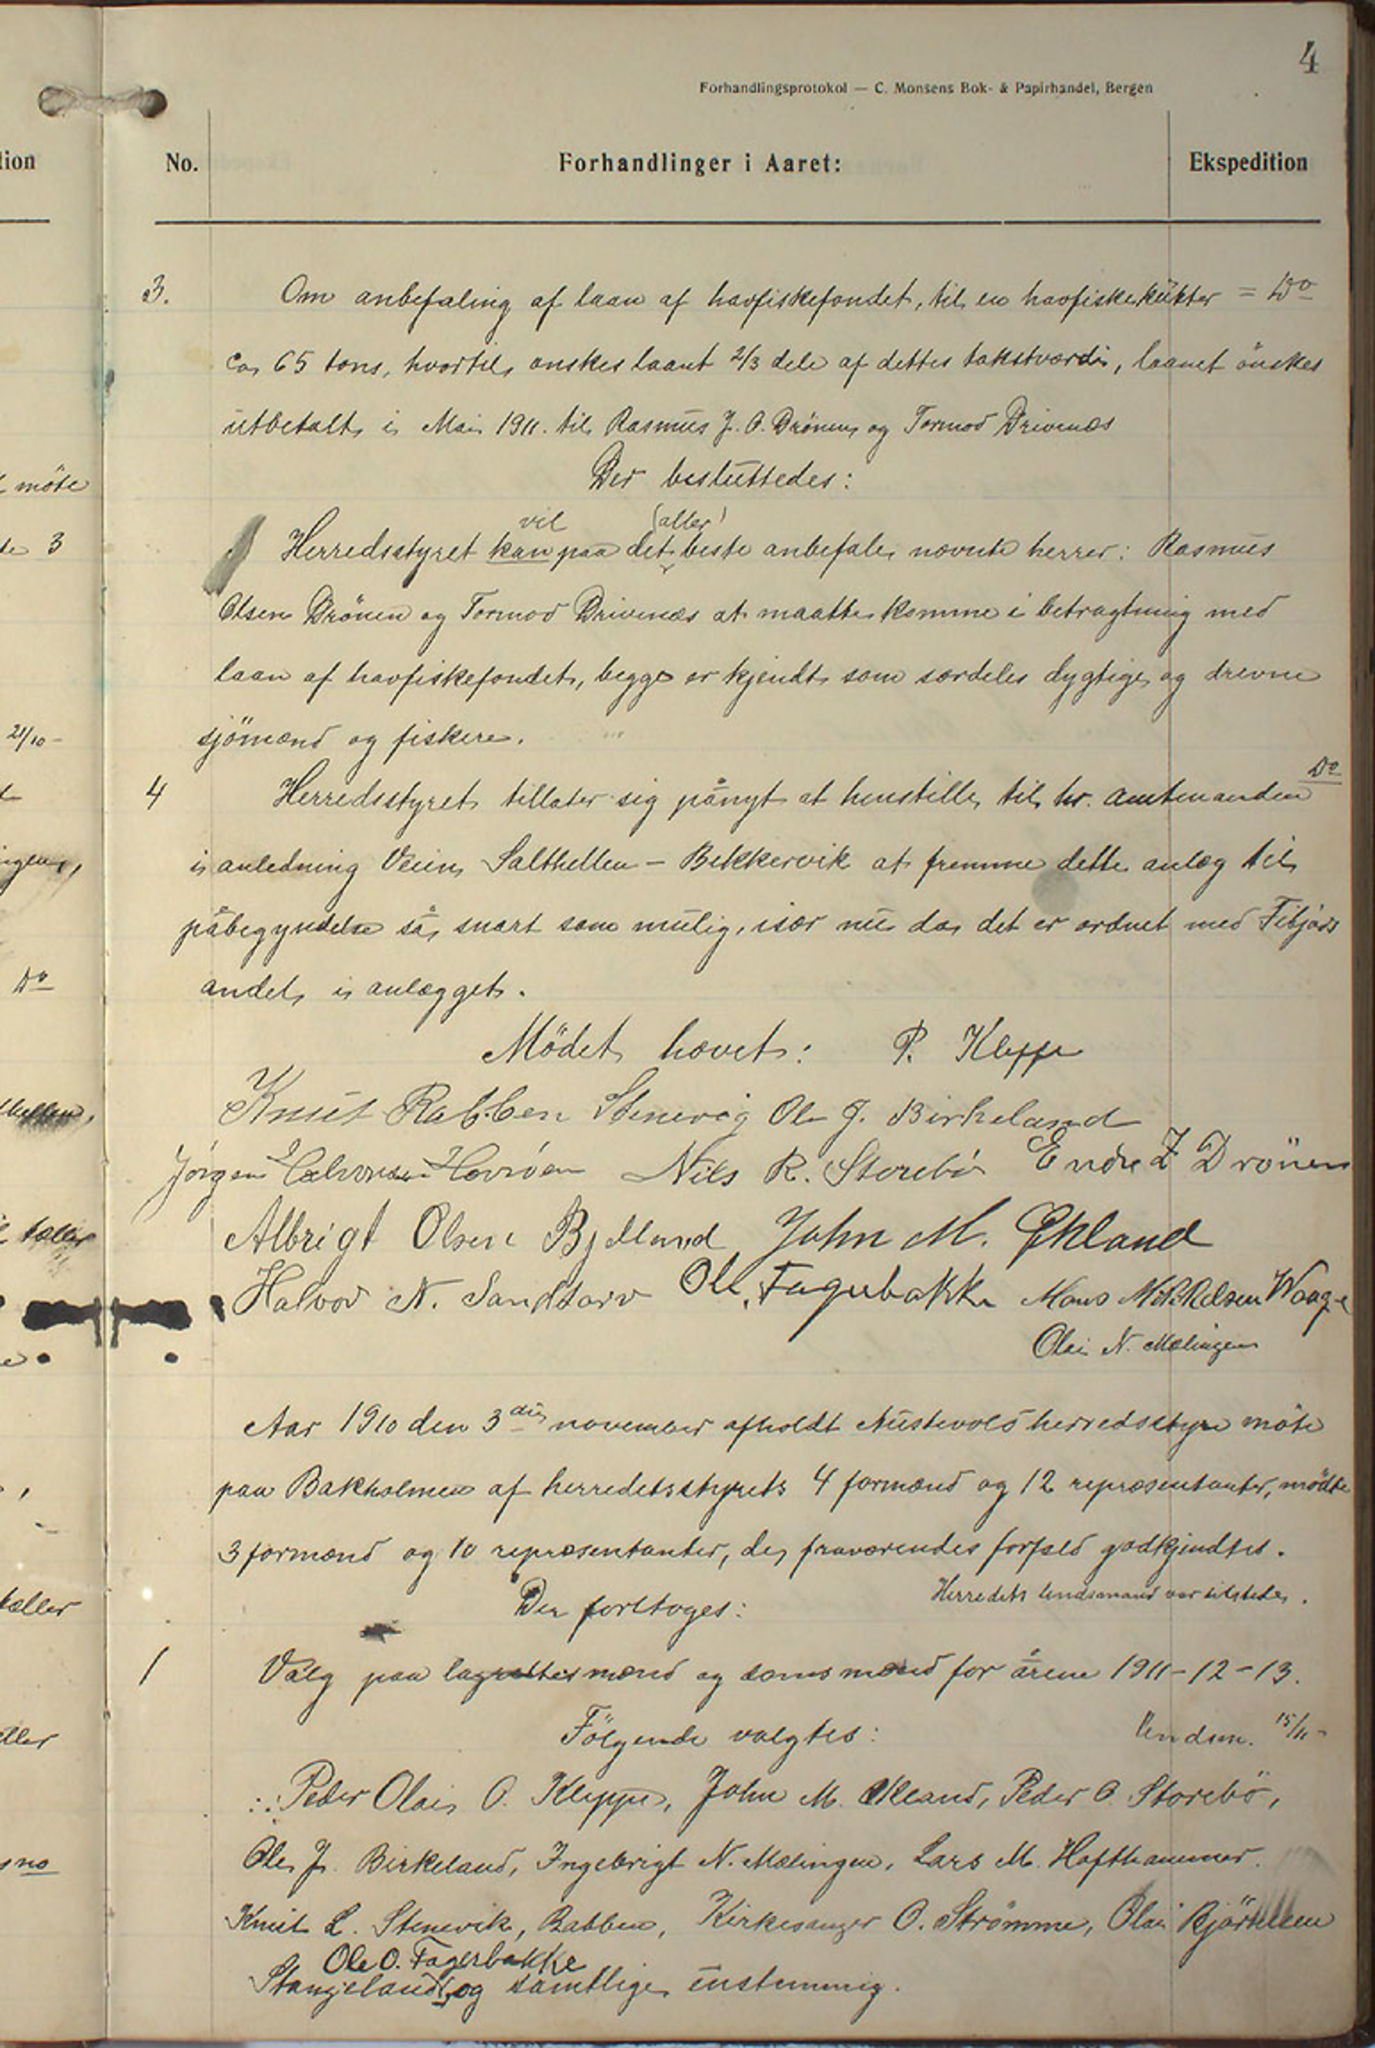 4
Forhandlingsprotokol — C. Monsens Bok- & Papirhandel, Bergen
No. Forhandlinger i Aaret: Ekspedition
3. Om anbefaling af laan af havfiskefondet, til en havfiskerkutter = Do
ca 65 tons, hvortil ønskes laant 2/3 dele af dettes takstværdi, laanet önskes
utbetalt i Mai 1911. til Rasmus J. O. Drönen og Tormod Drivenæs
Der besluttedes:
vil (aller)
Herredsstyret kan paa det beste anbefale nævnte herrer: Rasmus
Olsen Drönen og Tormod Drivenæs at maatte komme i betragtning med
laan af havfiskefondet, begge er kjendt som særdeles dygtige og drevne
sjömænd og fiskere.
4 Herredsstyret tillater sig pånyt at henstille til hr. amtmanden Do
i anledning Veien Salthellen - Bekkervik at fremme dette anlæg til
påbegyndelse så snart som mulig, især nu da det er ordnet med Fitjars
andel i anlægget.
Mödet hævet: P. Kleppe
Knut Rabben Stenevig Ole J. Birkeland
Jörgen Halvorsen Hevröen Nils R. Storebö Endre Z Drönen
Albrigt Olsen Bjelland John M. Økland
Halvor N. Sandtorv Ole Fagerbakke Mons Mikkelsen Waage
Olai N. Mælingen
Aar 1910 den 3die november afholdt Austevold herredsstyre möte
paa Bakholmen af herredetsstyrets 4 formænd og 12 repræsentanter, mödte
3 formænd og 10 repræsentanter, de fraværendes forfald godkjendtes.
Herredets lendsmand var tilstede.
Der foretoges:
1 Valg paa lagrettesmænd og domsmænd for årene 1911-12-13.
Fölgende valgtes: Lendsm. 15/11-
Peder Olai O. Kleppe, John M. Økland, Peder O. Storebö,
Ole J. Birkeland, Ingebrigt N. Mælingen, Lars M. Hofthammer.
Knut L. Stenevik, Rabben, Kirkesanger O. Strömme, Olai Kjärtelsen
Ole O. Fagerbakke
Stangeland, og samtlige enstemmig.